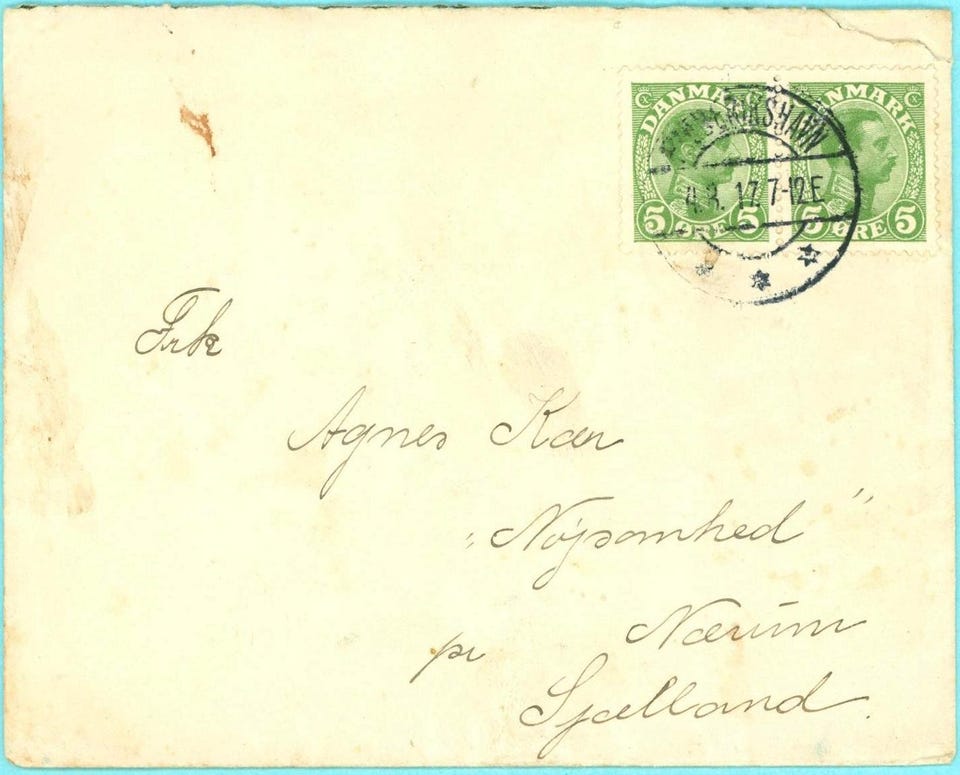 DANMARK
5 ØRE 5
DANMARK
5 ØRE 5
FREDERIKSHAVN
4.3.17. 7-12E
Frk
Agnes Kær
"Nøjsomhed"
pr Nærum
Sjælland.